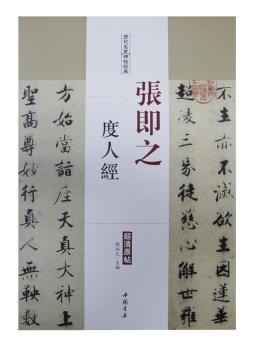 歷代名家碑帖經典
張即之
度人經
超清原帖
主編
中國書店
不生亦不滅欲生因蓮華
超凌三界徒慈心解世羅
方始當詣座天真大神上
聖高尊妙行真人無鞅數